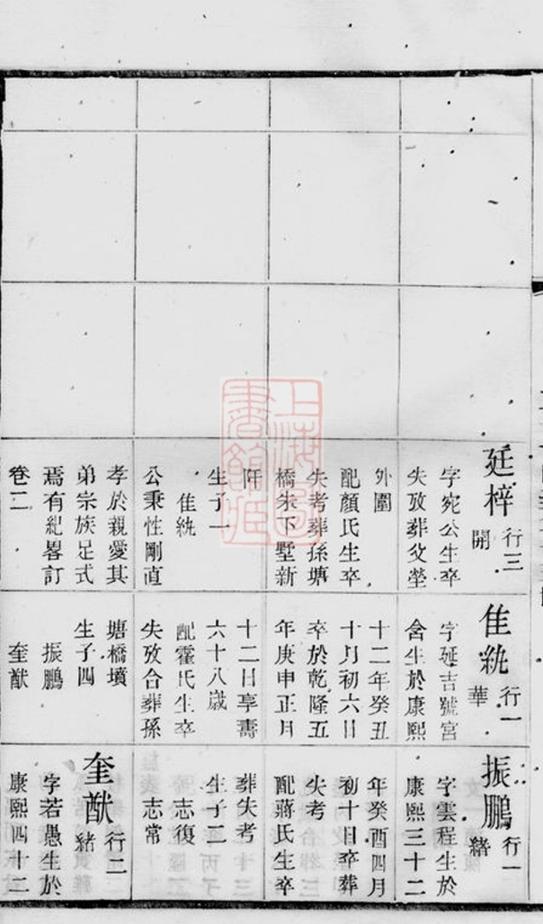 廷梓 行三 開
字宛公生卒
失攷葬父塋
外圍
配顏氏生卒
失考葬孫塘
橋朱下墅新
阡
生子一
佳紈
公秉性剛直
孝於親愛其
弟宗族足式
焉有紀畧訂
卷二
佳紈 行一 華
字延吉號宮
含生於康熙
十二年癸丑
十月初六日
卒於乾隆五
年庚申正月
十二日享壽
六十八歲
配霍氏生卒
失攷合葬孫
塘橋墳
生子四
振鵬
奎猷
振鵬 行一 緒
字雲程生於
康熙三十二
年癸酉四月
初十日卒葬
失考
配蔣氏生卒
葬失考
生子二
志復
志常
奎猷 行二 緒
字若愚生於
康熙四十二
上海圖書館藏